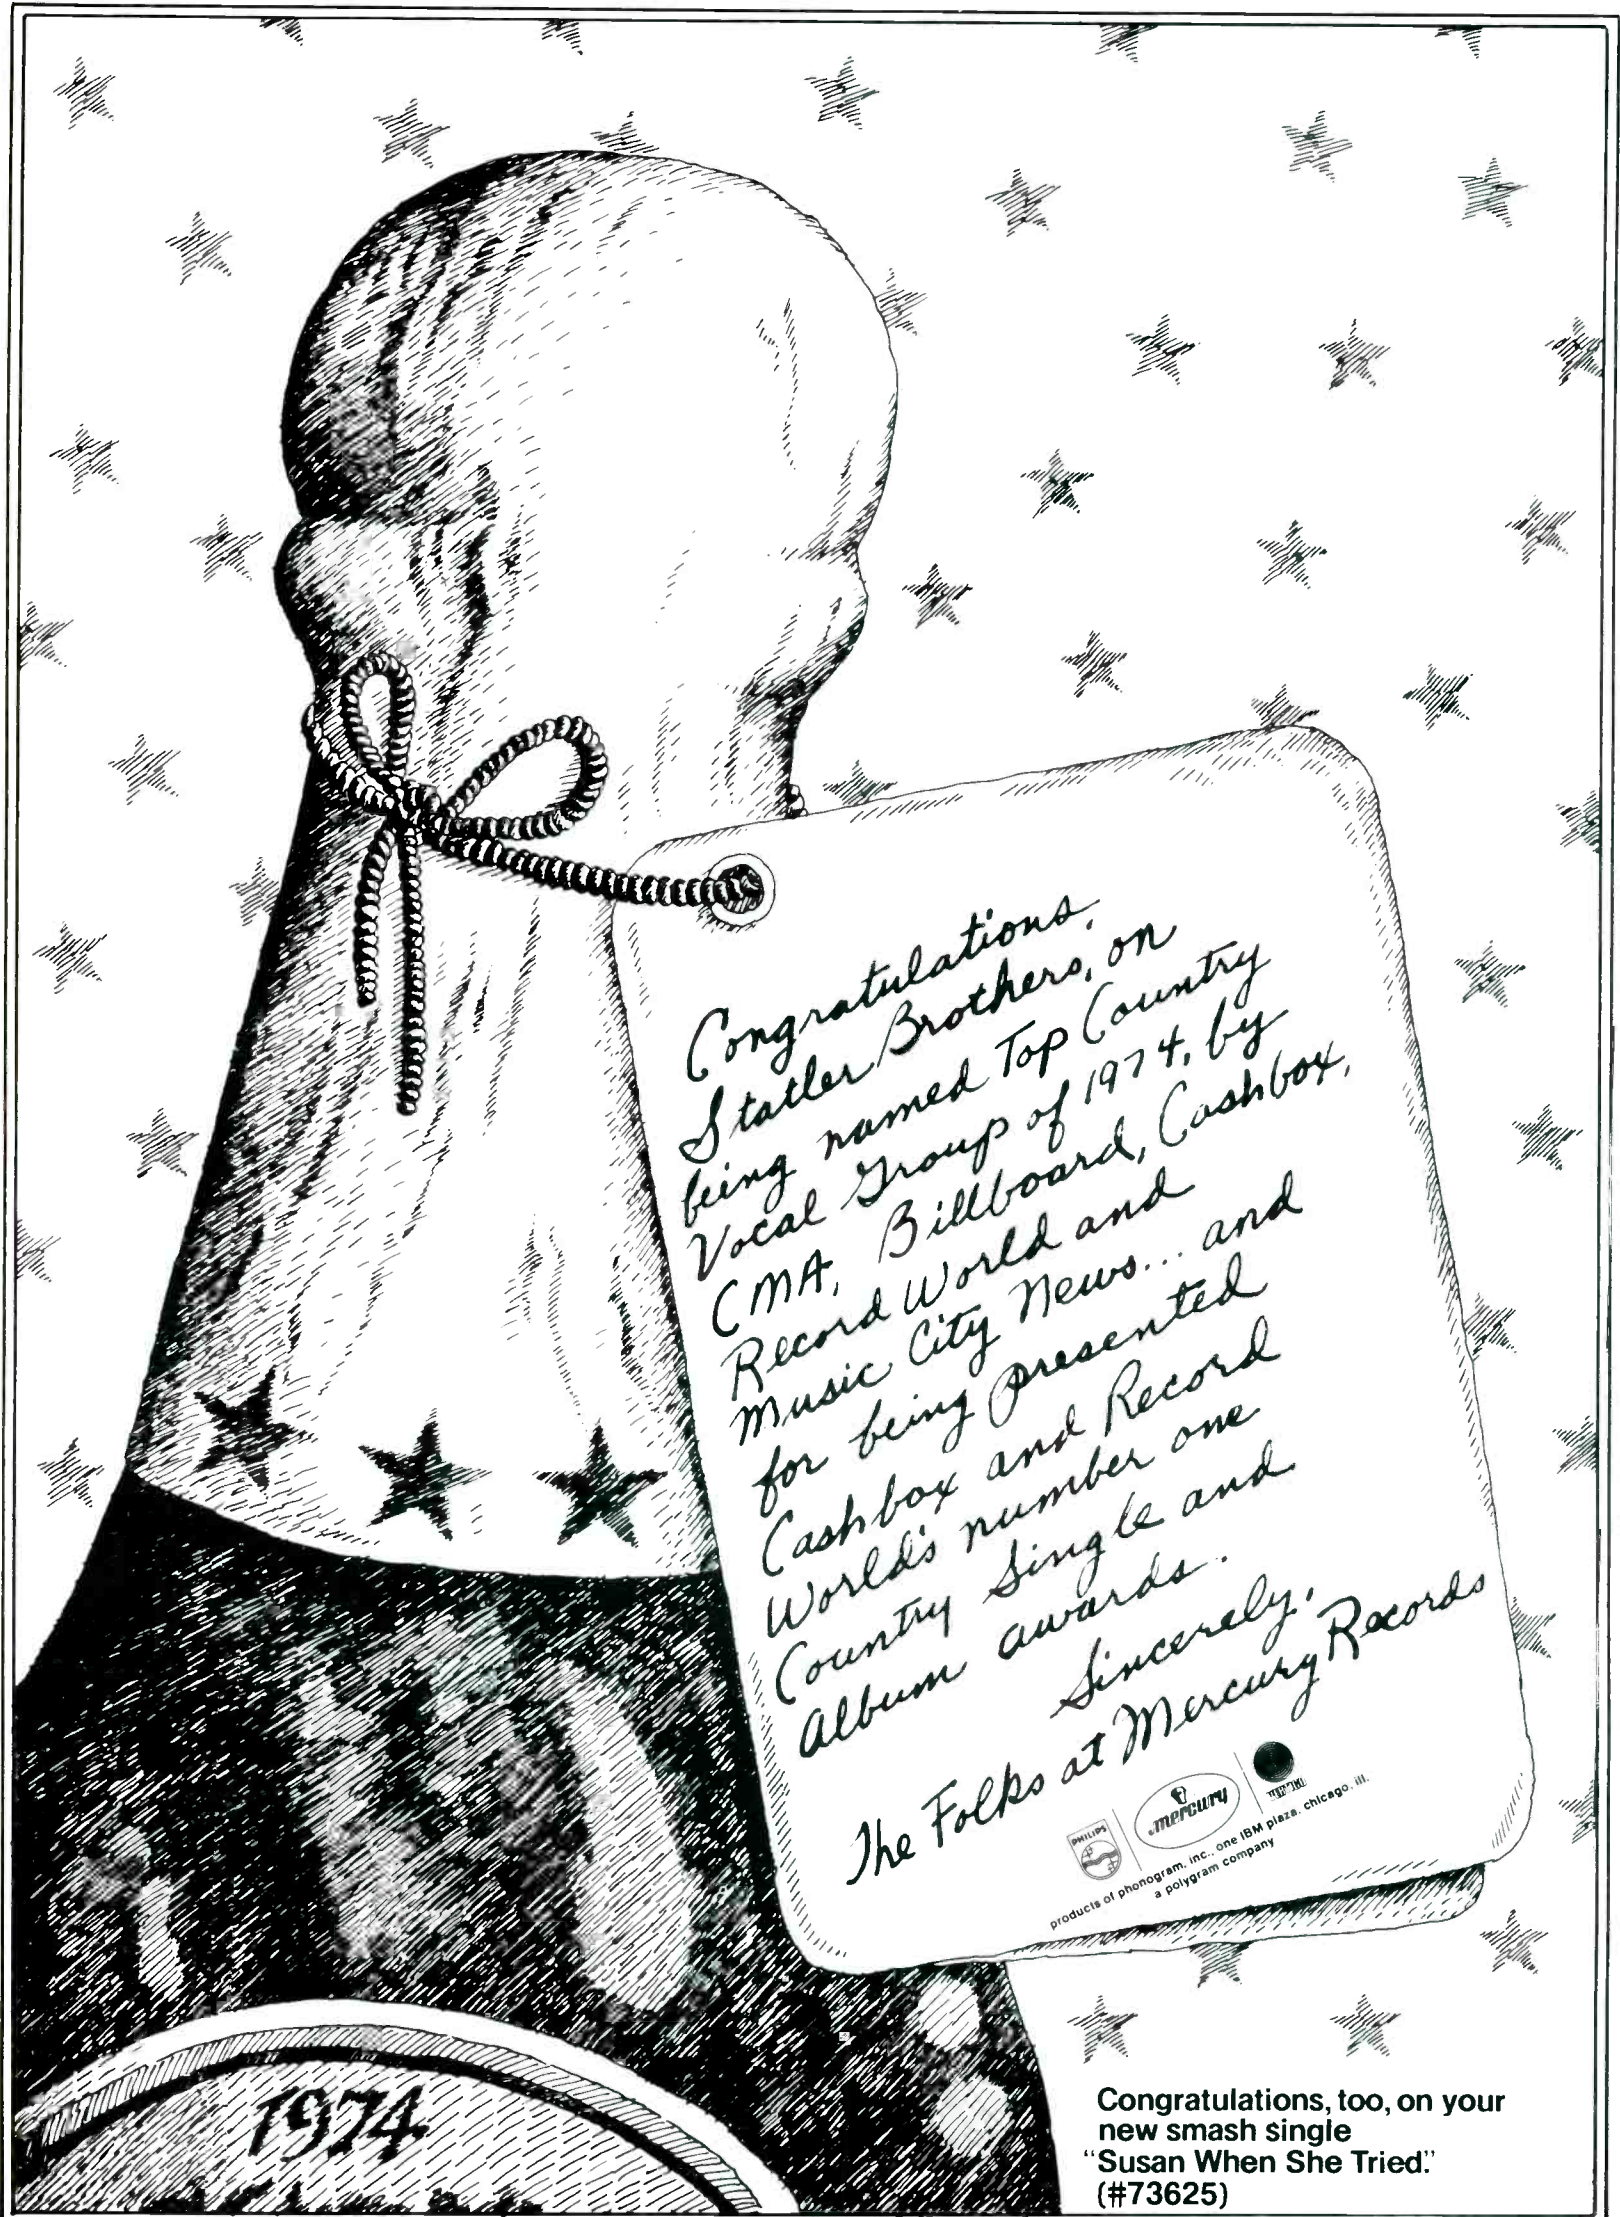 Congratulations,
Statler Brothers, on
being named Top Country
Vocal Group of 1974, by
CMA, Billboard, Cashbox,
Record World and
Music City News... and
for being presented
Cashbox and Record
World's number one
Country Single and
Album awards.
Sincerely,
The Folks at Mercury Records
PHILIPS
mercury
products of phonogram, inc., one IBM plaza, chicago, ill.
a polygram company
1974
Congratulations, too, on your
new smash single
"Susan When She Tried."
(#73625)